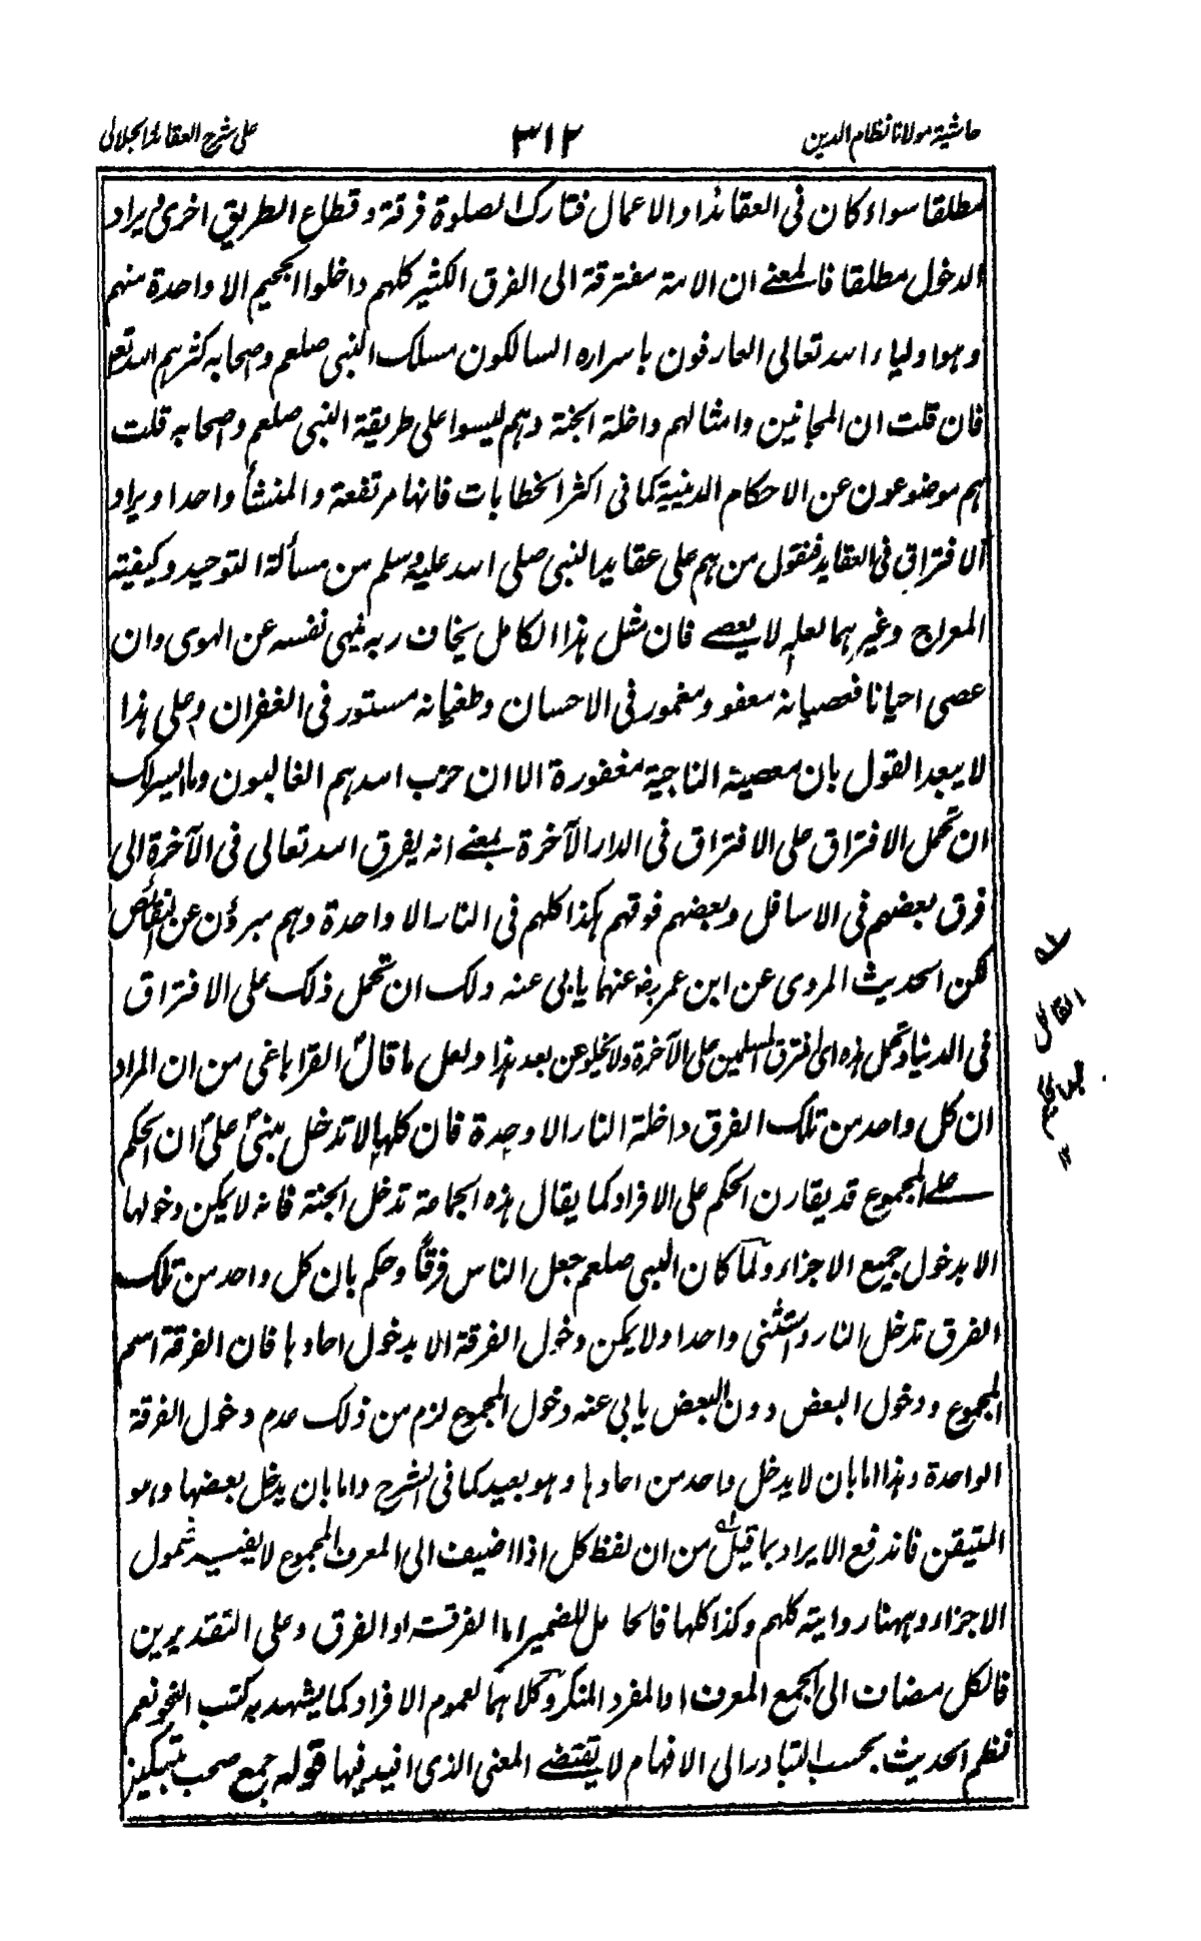 حاشية مولانا نظام الدين
٣١٢
على شرح العقائد الجلالى
مطلقا سواء كان فى العقائد او الاعمال فتارك الصلوة فرقة و قطاع الطريق اخرى ويراد
الدخول مطلقا فالمعنے ان الامة مفترقة الى الفرق الكثير كلهم داخلوا الجحيم الا واحدة منهم
وهو اولياء الله تعالى العارفون باسراره السالكون مسلك النبى صلعم وصحابه كثرهم الله تعا
فان قلت ان المجانين وامثالهم داخلة الجنة وهم ليسوا على طريقة النبى صلعم واصحابه قلت
هم موضوعون عن الاحكام الدينية كما فى اكثر الخطابات فانها مرتفعة والمنشأ واحدا ويراد
الافتراق فى العقايد فنقول من هم على عقايد النبى صلى الله عليه وسلم من مسألة التوحيد وكيفيته
المعراج وغيرهما لعله لا يعصے فان مثل هذا الكامل يخاف ربه ينهى نفسه عن الهوى وان
عصى احيانا فعصيانه معفو ومغمور فى الاحسان وطغيانه مستور فى الغفران وعلى هذا
لا يبعد القول بان معصية الناجية مغفورة الا ان حزب الله هم الغالبون وما اليسر لك
ان تحمل الافتراق على الافتراق فى الدار الآخرة بمعنے انه يفرق الله تعالى فى الآخرة الى
فرق بعضهم فى الاسافل وبعضهم فوقهم هكذا كلهم فى النار الا واحدة وهم مبرؤن عن النقائص
لكن الحديث المروى عن ابن عمر رض عنهما يابى عنه ولك ان تحمل ذلك على الافتراق
فى الدنيا وتحمل هذه اى افترق المسلمين على الآخرة ولا يخلو عن بعد هذا ولعل ما قال القراباغى من ان المراد
ان كل واحد من تلك الفرق داخلة النار الا وحدة فان كلها لا تدخل مبنى على ان الحكم
علے المجموع قد يقارن الحكم على الافراد كما يقال هذه الجماعة تدخل الجنة فانه لا يمكن دخولها
الا بدخول جميع الاجزاء ولما كان النبى صلعم جعل الناس فرقاً وحكم بان كل واحد من تلك
الفرق تدخل النار واستثنى واحدا ولا يمكن دخول الفرقة الا بدخول احادها فان الفرقة اسم
المجموع ودخول البعض دون البعض يابى عنه دخول المجموع لزم من ذلك عدم دخول الفرقة
الواحدة وهذا اما بان لا يدخل واحد من احادها وهو بعيد كما فى الشرح واما بان يدخل بعضها وهو
المتيقن فاندفع الايراد بما قيل من ان لفظ كل اذا اضيف الى المعرف المجموع لا يفيد شمول
الاجزاء وههنا رواية كلهم وكذا كلها فالحامل للضمير اما الفرقة او الفرق وعلى التقديرين
فالكل مضاف الى الجمع المعرف او المفرد المنكر وكلاهما لعموم الافراد كما يشهد به كتب النحو نعم
نظم الحديث بحسب التبادر الى الافهام لا يقتضے المعنى الذى افيد فيها قوله جمع صحب بتبكيز
له
القائل